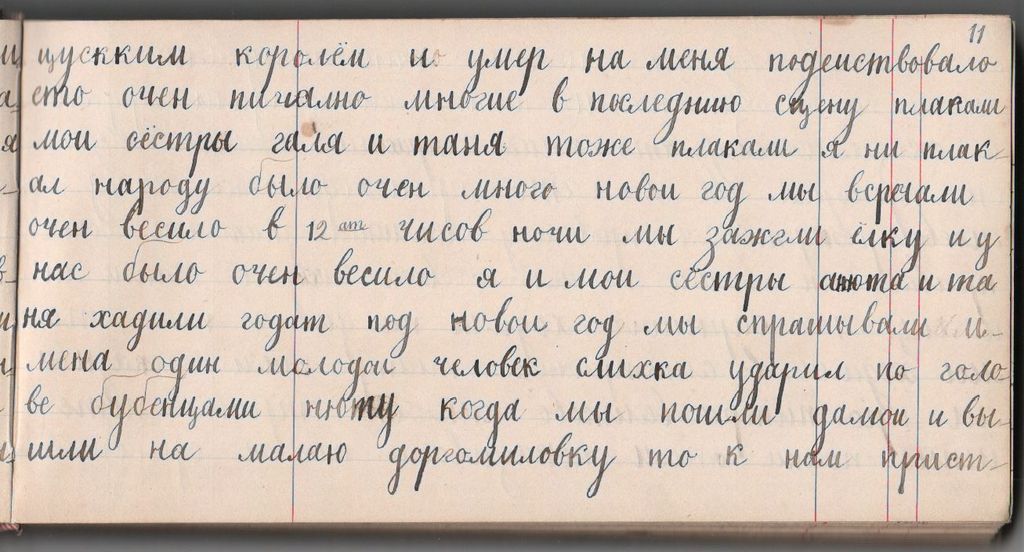 11
цускким королём и умер на меня подеиствовало
ето очен пичално многие в последнию сцену плакали
мои сёстры галя и таня тоже плакали я ни плак-
ал народу было очен много новои год мы всречали
очен весило в 12 ат чисов ночи мы зажгли ёлку и у
нас было очен весило я и мои сёстры анюта и та
ня хадили годат под новои год мы спрашывали и-
мена один молодои человек слихка ударил по голо-
ве бубенцами нюту когда мы пошли дамои и вы-
шли на малаю доргомиловку то к нам прист-